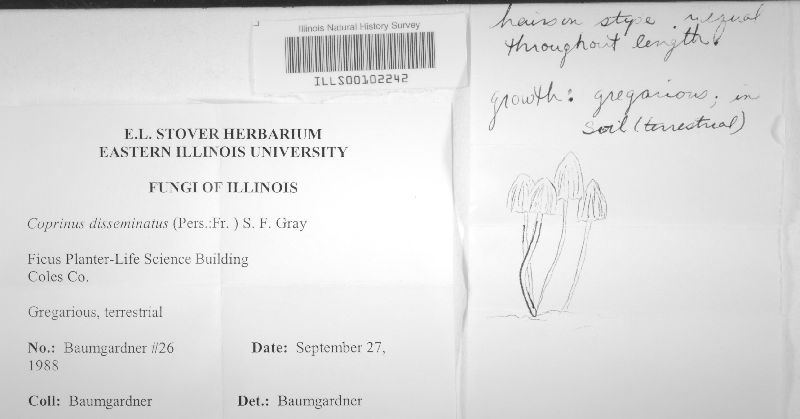 Illinois Natural History Survey
ILLS00102242
E.L. STOVER HERBARIUM
EASTERN ILLINOIS UNIVERSITY
FUNGI OF ILLINOIS
Coprinus disseminatus (Pers.:Fr. ) S. F. Gray
Ficus Planter-Life Science Building
Coles Co.
Gregarious, terrestrial
No.: Baumgardner #26 Date: September 27,
1988
Coll: Baumgardner Det.: Baumgardner
hairs on stype
throughout length.
growth: gregarious; in
soil (terrestrial)